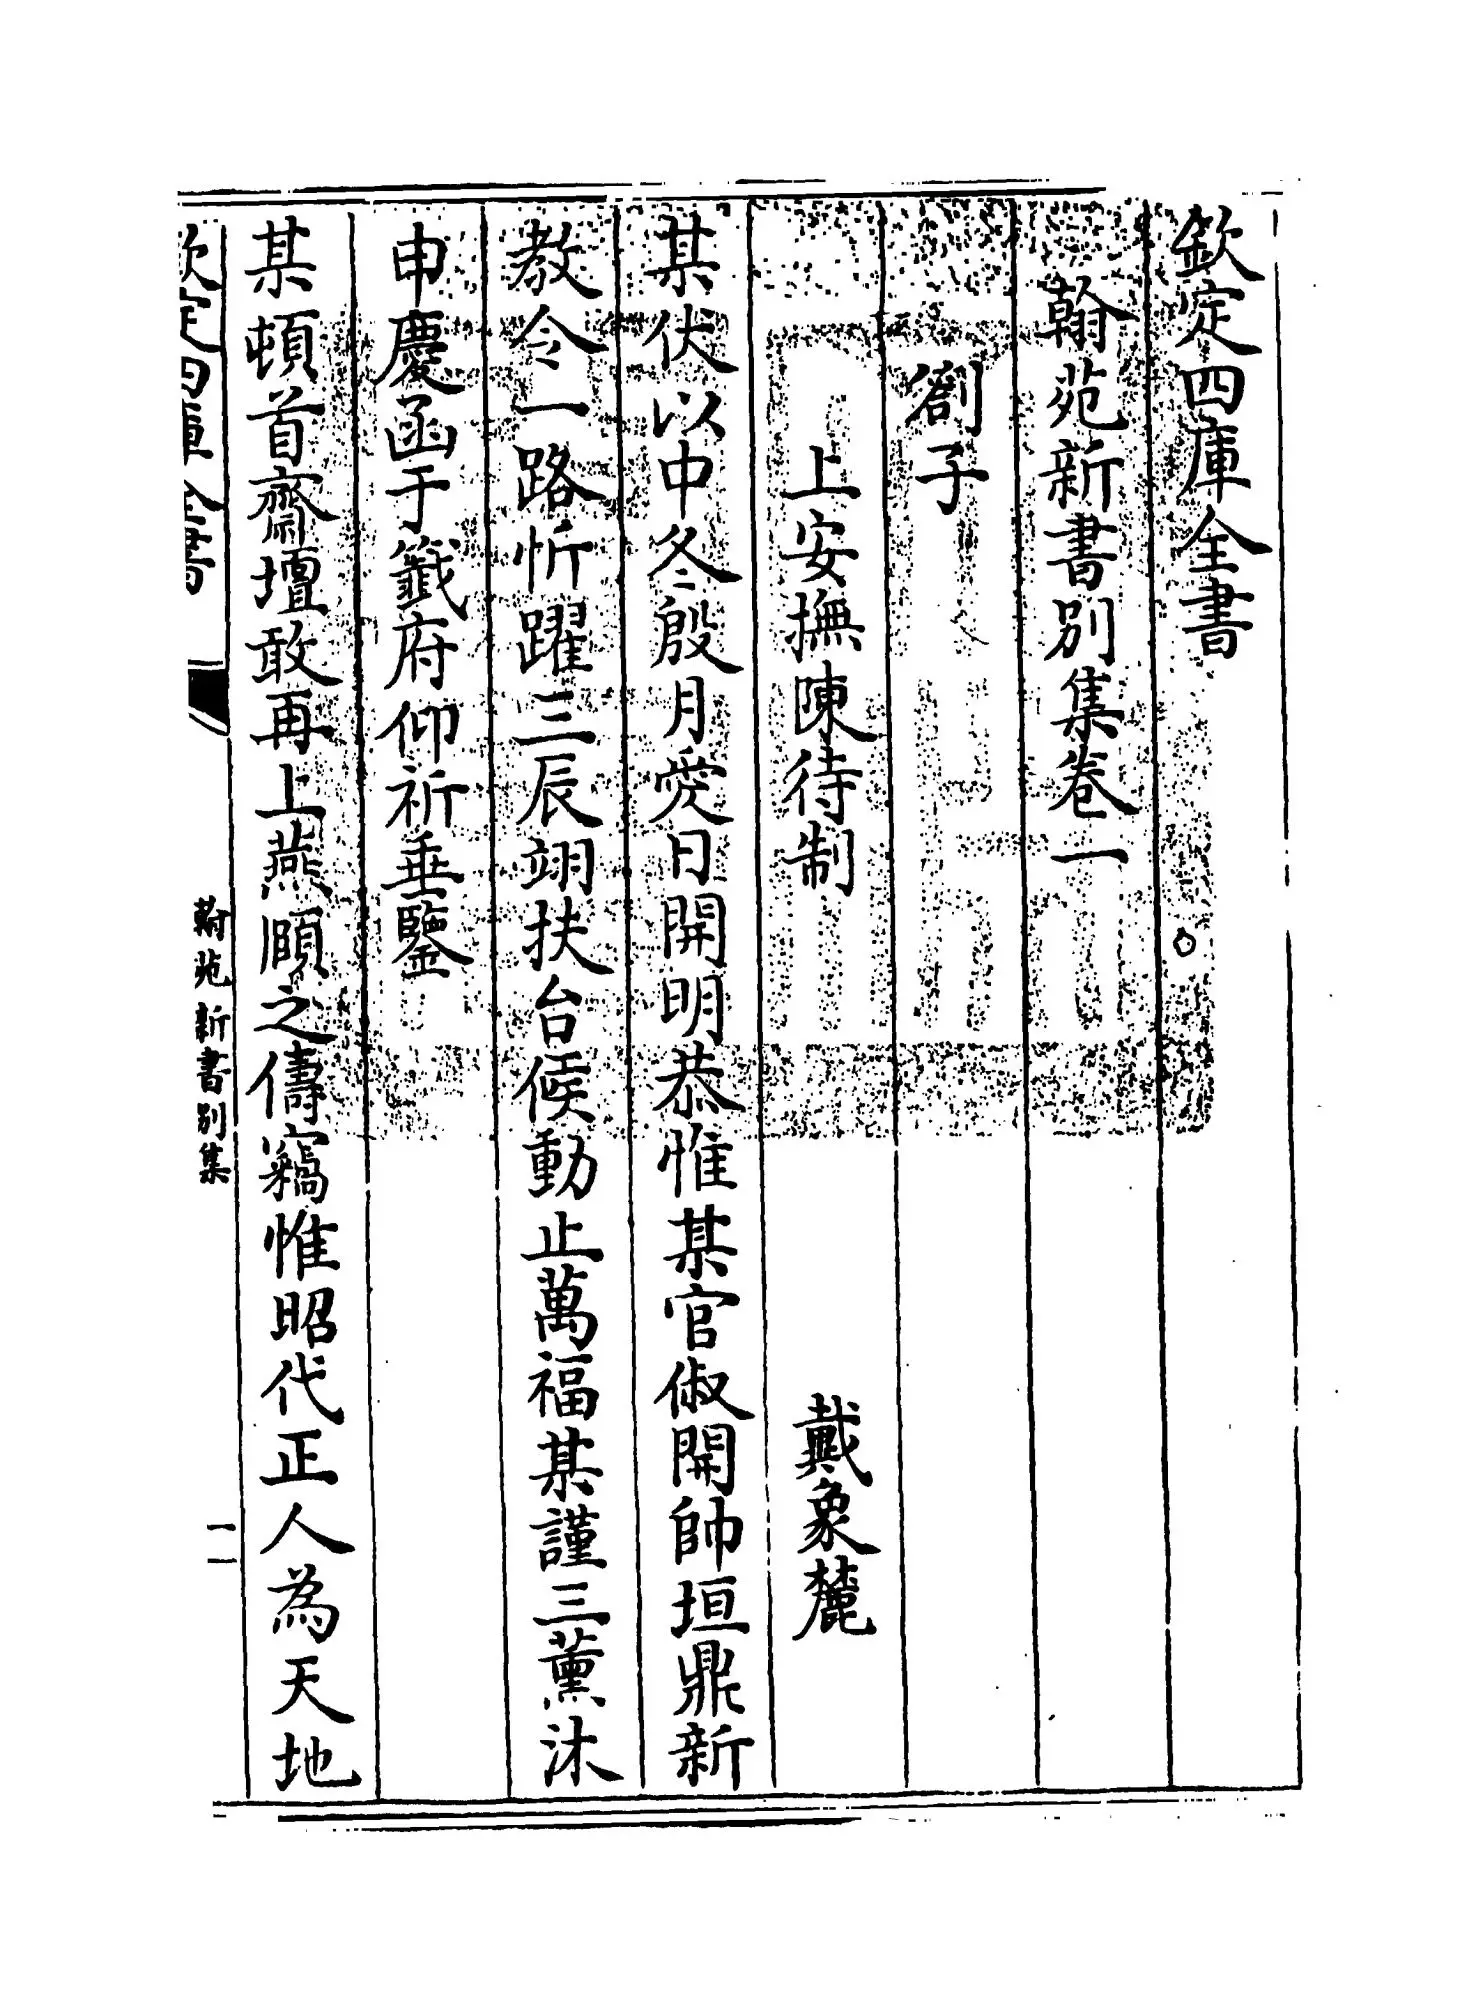 欽定四庫全書
翰苑新書別集卷一
劄子
上安撫陳待制　戴象麓
某伏以中冬殷月愛日開明恭惟某官俶開帥垣鼎新
教令一路忻躍三辰翊扶台候動止萬福某謹三薰沐
申慶函于籤府仰祈垂鑒
某頓首齋壇敢再上燕頤之儔竊惟昭代正人為天地
欽定四庫全書
翰苑新書別集
一